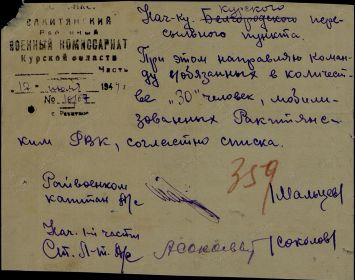 РАКИТЯНСКИЙ
Районный
ВОЕННЫЙ КОМИССАРИАТ
Курской области
Часть
17 июля 1944 г.
№
с. Ракитное
Нач-ку Белгородского Курского пере-
сыльного пункта.
При этом направляю коман-
ду в/обязанных в количест-
ве „30" человек, мобили-
зованных Ракитянс-
ким РВК, согласно списка.
359
Райвоенком
капитан а/с (Мальцев)
Нач. 1-й части
Ст. Л-т а/с (Соколов)